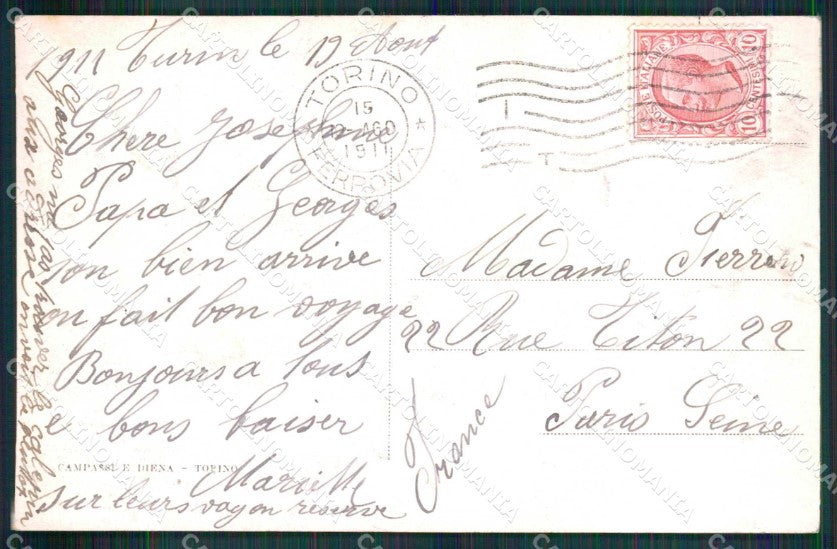 1911 Turin le 19 Aout
Chere Josephine
Papa et Georges
son bien arrive
on fait bon voyage
Bonjours a tous
e bons baiser
Marielle
sur leurs vagon reserve
Georges na pas
CAMPASSI E DIENA - TORINO
TORINO
15
AGO
1911
FERROVIA
POSTE ITALIANE
CENTESIMI
10
10
Madame Ferrero
22 Rue Titon 22
Paris Seine
France
CARTOLINOMANIA